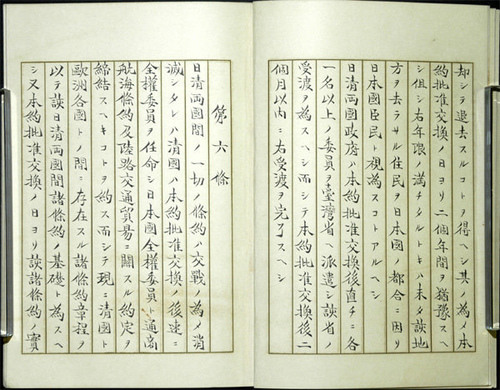 却シテ退去スルコトヲ得ヘシ其ノ為メ本
約批准交換ノ日ヨリ二個年間ヲ猶豫スヘ
シ但シ右年限ノ満チタルトキハ未タ該地
方ヲ去ラサル住民ヲ日本國ノ都合ニ因リ
日本國臣民ト視為スコトアルヘシ
日清兩國政府ハ本約批准交換後直チニ各
一名以上ノ委員ヲ臺灣省ヘ派遣シ該省ノ
受渡ヲ為スヘシ而シテ本約批准交換後二
個月以内ニ右受渡ヲ完了スヘシ
第六條
日清兩國間ノ一切ノ條約ハ交戰ノ為メ消
滅シタレハ清國ハ本約批准交換ノ後速ニ
全權委員ヲ任命シ日本國全權委員ト通商
航海條約及陸路交通貿易ニ關スル約定ヲ
締結スヘキコトヲ約ス而シテ現ニ清國ト
歐洲各國トノ間ニ存在スル諸條約章程ヲ
以テ該日清兩國間諸條約ノ基礎ト為スヘ
シ又本約批准交換ノ日ヨリ該諸條約ノ實